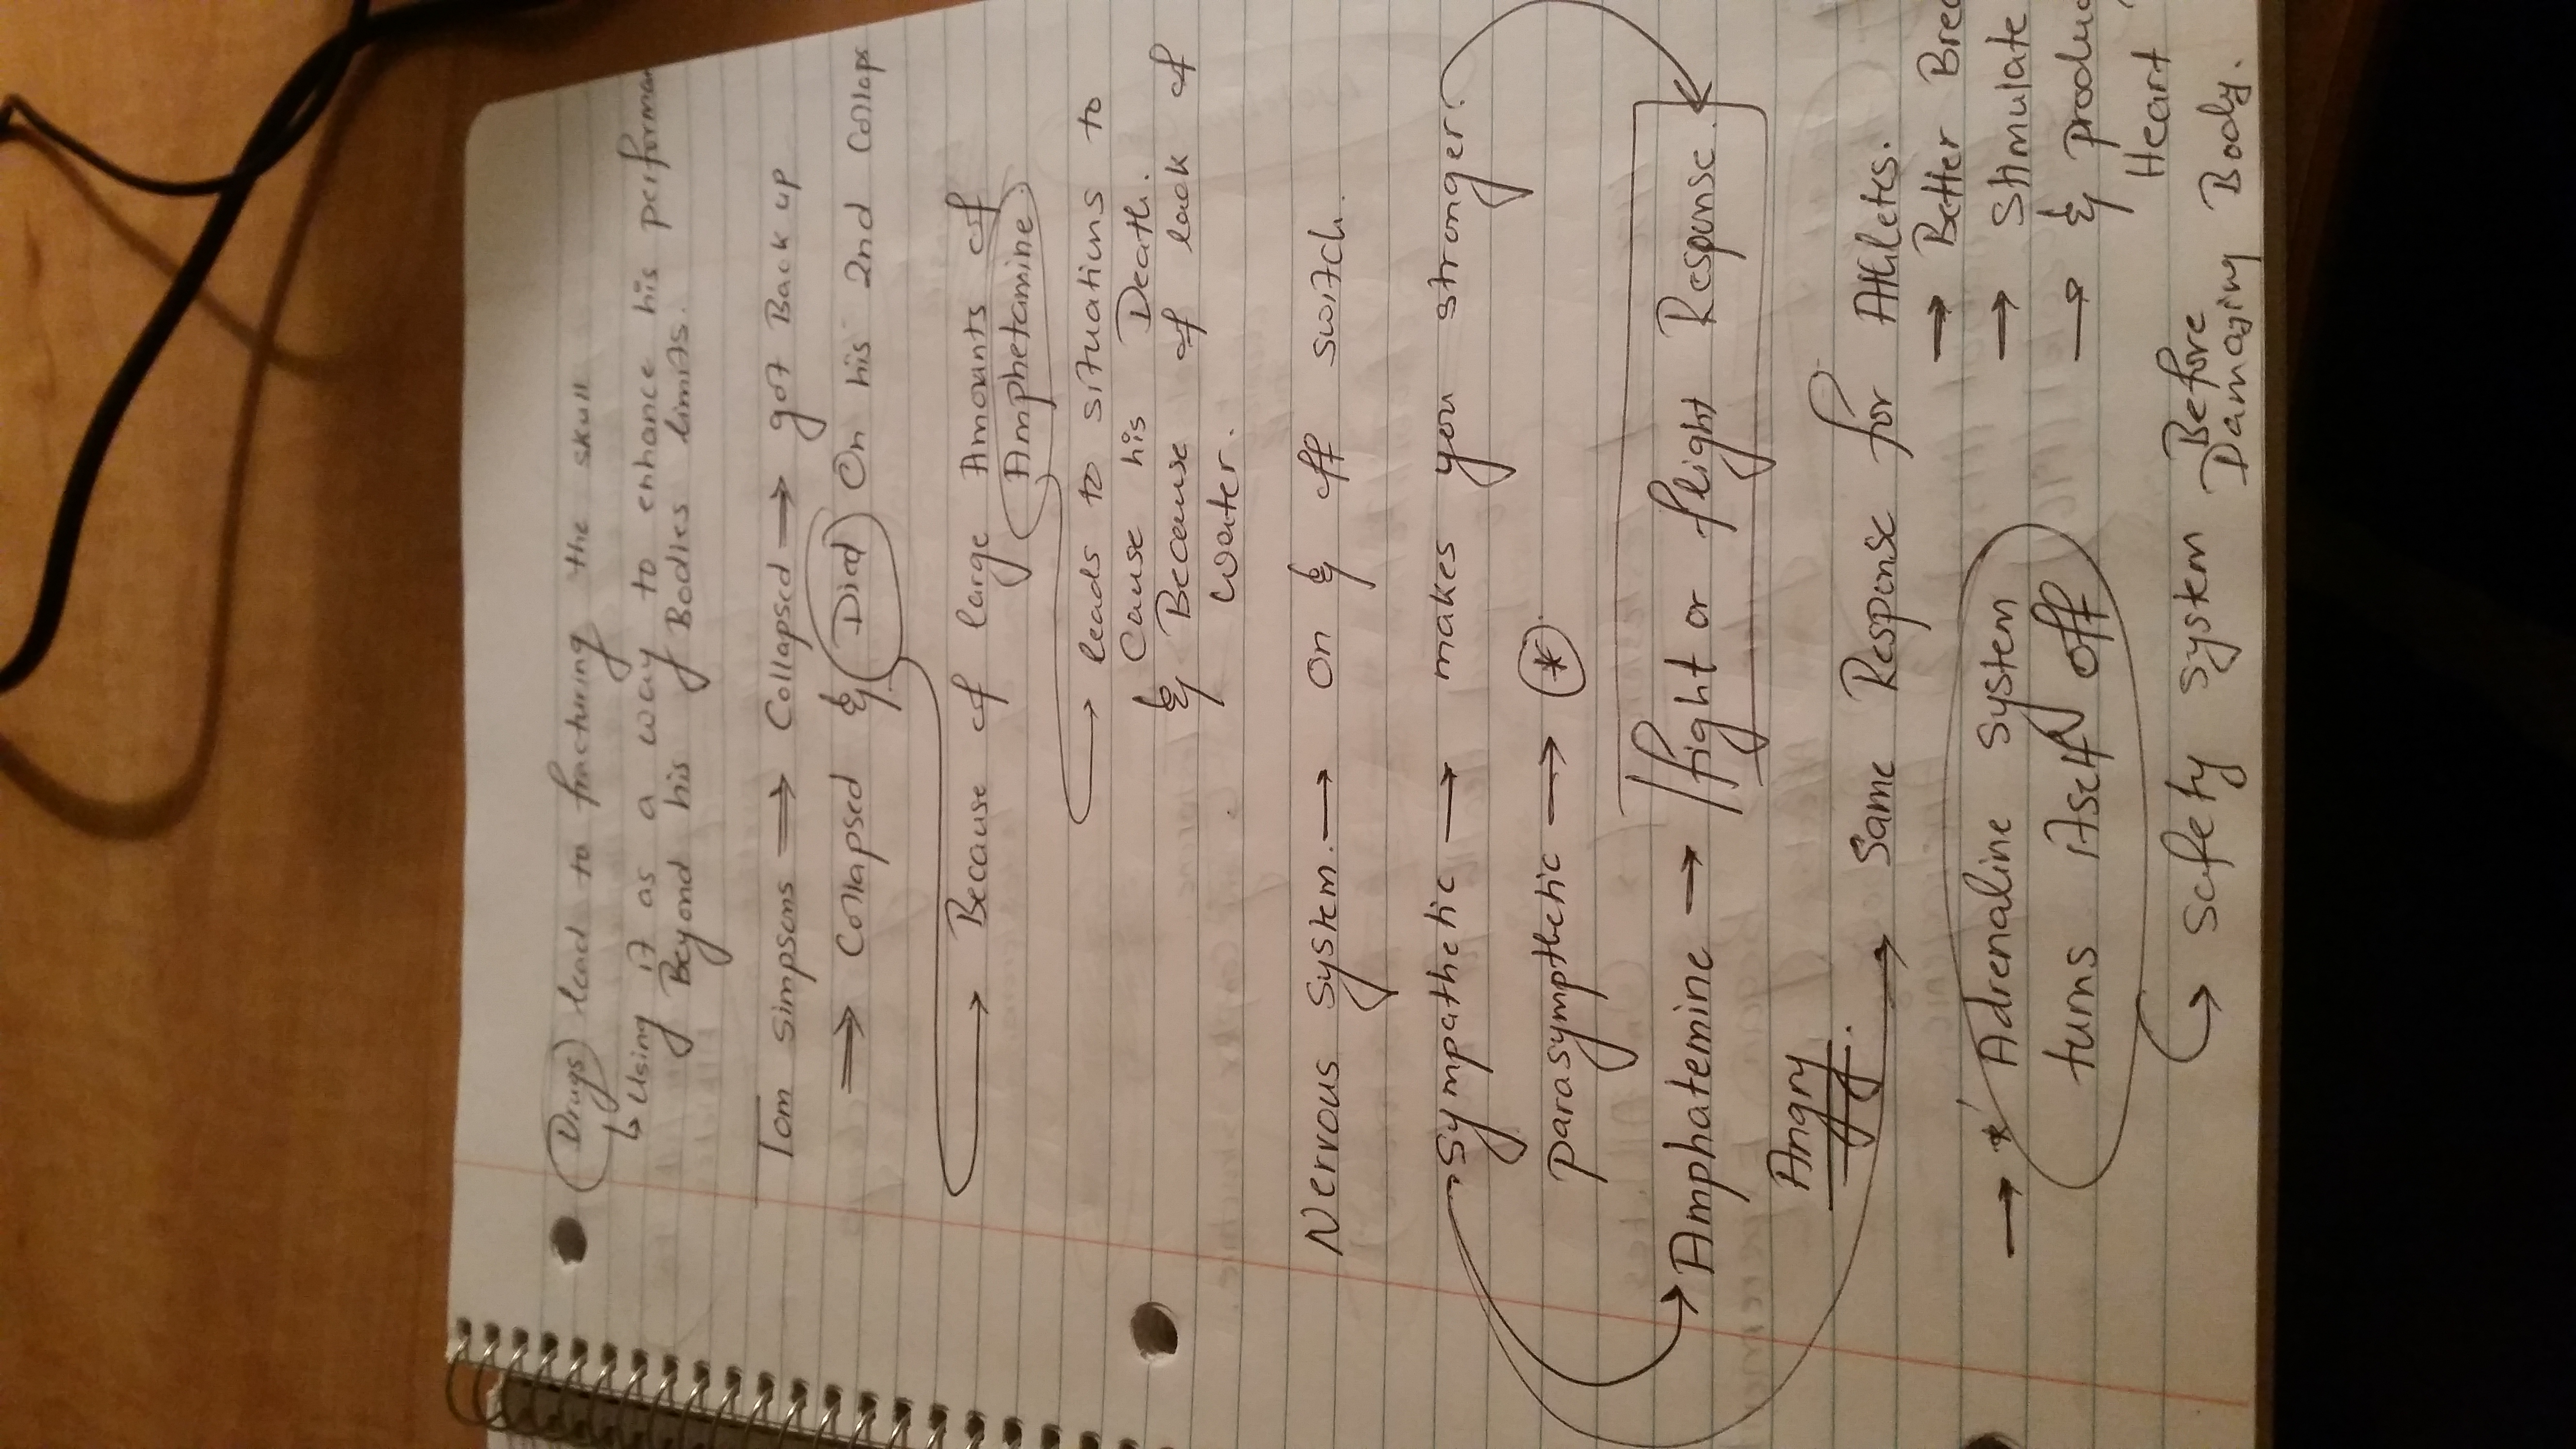 Drugs lead to fracturing the skull
↳ Using it as a way to enhance his performan
Beyond his Bodies limits.
Tom simpsons ⇒ Collapsed ⇒ got Back up
⇒ Collapsed & Died On his 2nd Collaps
→ Because of large Amounts of
Amphetamine
→ leads to situations to
Cause his Death.
& Because of lack of
water.
Nervous System. → On & off switch.
Sympathetic → makes you stronger.
Parasympthetic → *.
→ Amphatemine → fight or flight Response.
Angry.
→ Same Response for Athletes.
→ Better Brea
→ * Adrenaline System → Stimulate
turns itself off → & produc
Heart
↳ Safety System Before
Damaging Body.